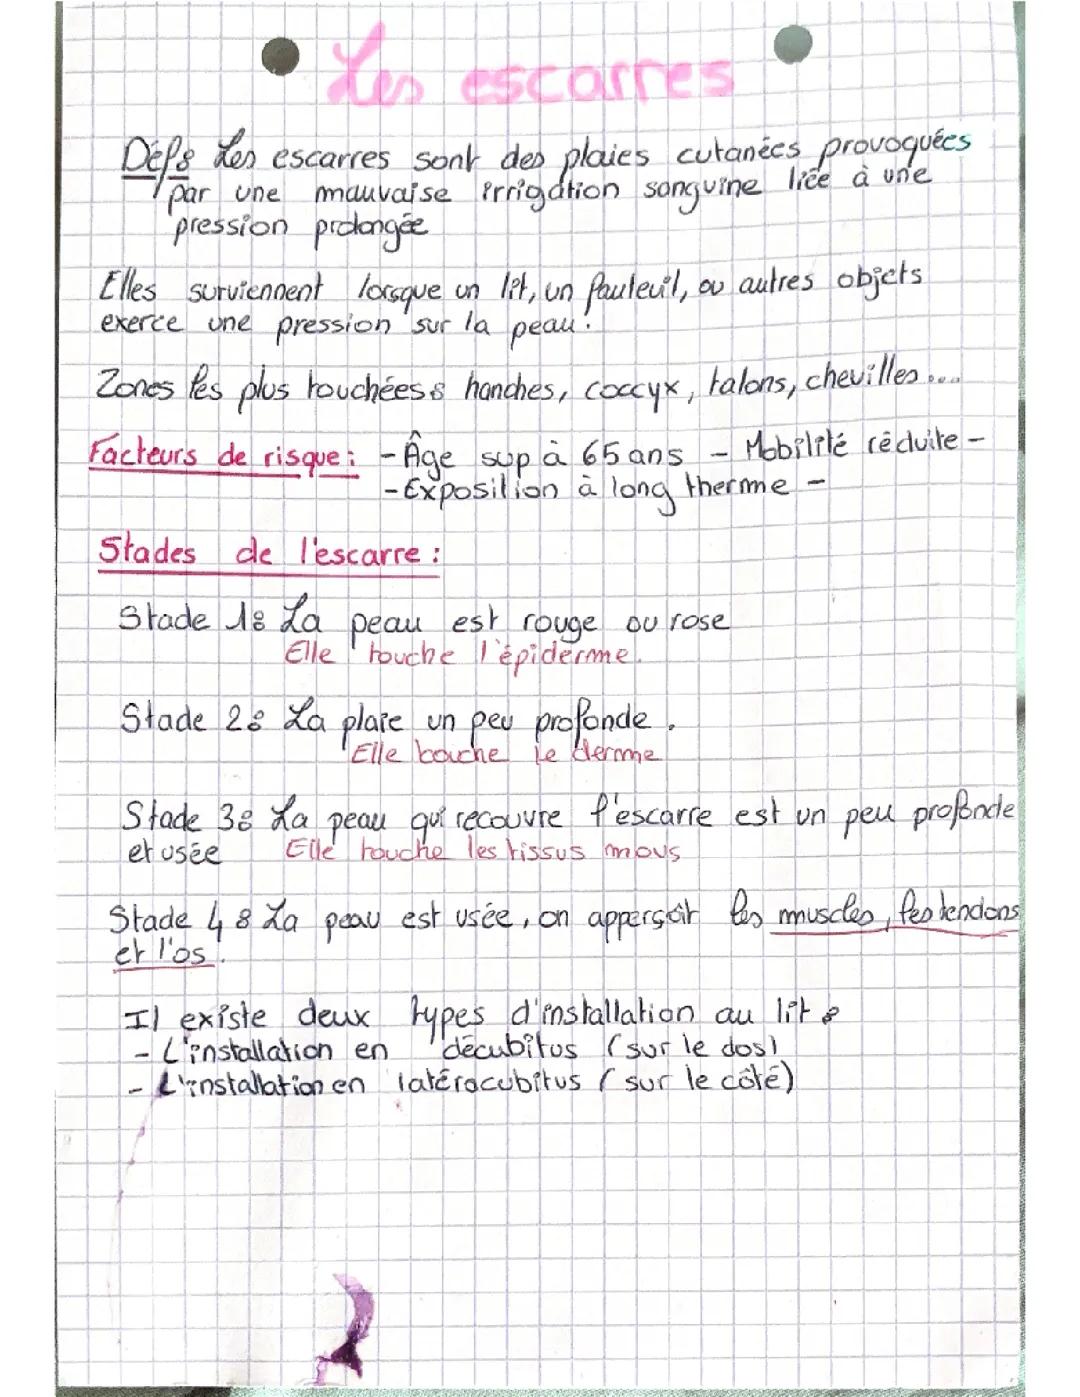 Les escarres
Def: Les escarres sont des plaies cutanées provoquées
par une mauvaise irrigation sanguine liée à une
pression prolongée
Elles surviennent lorsque un lit, un fauteuil, ou autres objets
exerce une pression sur la peau.
Zones les plus touchées: hanches, coccyx, talons, chevilles....
Facteurs de risque: - Âge sup à 65 ans - Mobilité réduite -
- Exposition à long therme -
Stades de l'escarre :
Stade 1: La peau est rouge ou rose
Elle touche l'épiderme.
Stade 2: La plaie un peu profonde.
Elle touche le derme
Stade 3: La peau qui recouvre l'escarre est un peu profonde
et usée Elle touche les tissus mous
Stade 4: La peau est usée, on apperçoit les muscles, les tendons
et l'os.
Il existe deux types d'installation au lit:
- L'installation en décubitus (sur le dos)
- L'installation en latérocubitus (sur le côté)